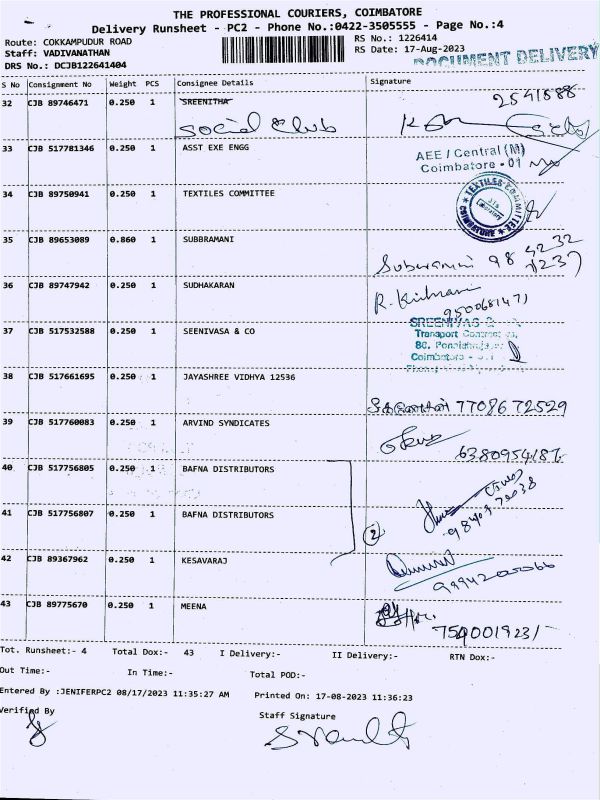 THE PROFESSIONAL COURIERS, COIMBATORE
Delivery Runsheet - PC2 - Phone No.:0422-3505555 - Page No.:4
Route: COKKAMPUDUR ROAD
RS No.: 1226414
Staff: VADIVANATHAN
RS Date: 17-Aug-2023
DRS No.: DCJB122641404
DOCUMENT DELIVERY
S No Consignment No Weight PCS Consignee Details Signature
32 CJB 89746471 0.250 1 SREENITHA 2541888
Social Club
33 CJB 517781346 0.250 1 ASST EXE ENGG
AEE / Central (M)
Coimbatore - 01
34 CJB 89750941 0.250 1 TEXTILES COMMITTEE
TEXTILES COMMITTEE
Laboratory
COIMBATORE
35 CJB 89653089 0.860 1 SUBBRAMANI
Subramani 98 4232
36 CJB 89747942 0.250 1 SUDHAKARAN
9500681471
37 CJB 517532588 0.250 1 SEENIVASA & CO
Transport
Coimbatore
38 CJB 517661695 0.250 1 JAYASHREE VIDHYA 12536
7708672529
39 CJB 517760083 0.250 1 ARVIND SYNDICATES
40 CJB 517756805 0.250 1 BAFNA DISTRIBUTORS
41 CJB 517756807 0.250 1 BAFNA DISTRIBUTORS
2
42 CJB 89367962 0.250 1 KESAVARAJ
43 CJB 89775670 0.250 1 MEENA
Tot. Runsheet:- 4 Total Dox:- 43 I Delivery:- II Delivery:- RTN Dox:-
Out Time:- In Time:- Total POD:-
Entered By :JENIFERPC2 08/17/2023 11:35:27 AM Printed On: 17-08-2023 11:36:23
Verified By
Staff Signature